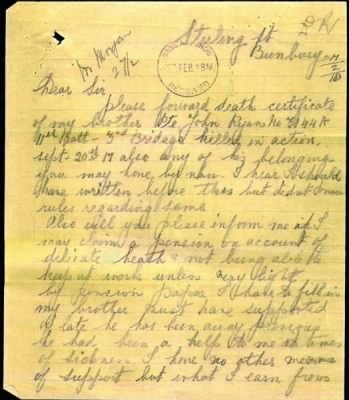 Sterling St
Bunbury
Mr Morgan
27/2
FEB 18
RECEIVED
Dear Sir
please forward death certificate
of my brother Pte John Ryan No
11st Batt - 3rd Bridage killed in action
sept - 20th 17 also any of his belonging
you may have by now. I hear I should
have written before this but didnt know
rules regarding same
Also will you please inform me if I
may claim a pension on account of
delicate heath & not being able to
keep at work unless very light
by pension paper I have to fill in
my brother must have supported
of late he has been away
he had been a help to me in times
of sickness I have no other means
of support but what I earn from